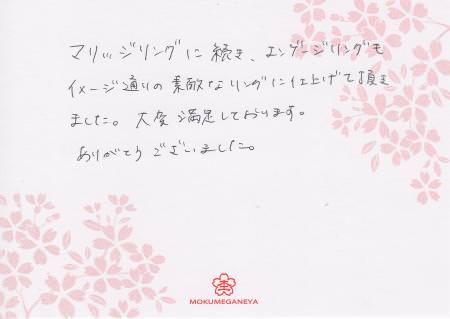 マリッジリングに続き、エンゲージリングも
イメージ通りの素敵なリングに仕上げて頂き
ました。大変満足しております。
ありがとうございました。
MOKUMEGANEYA